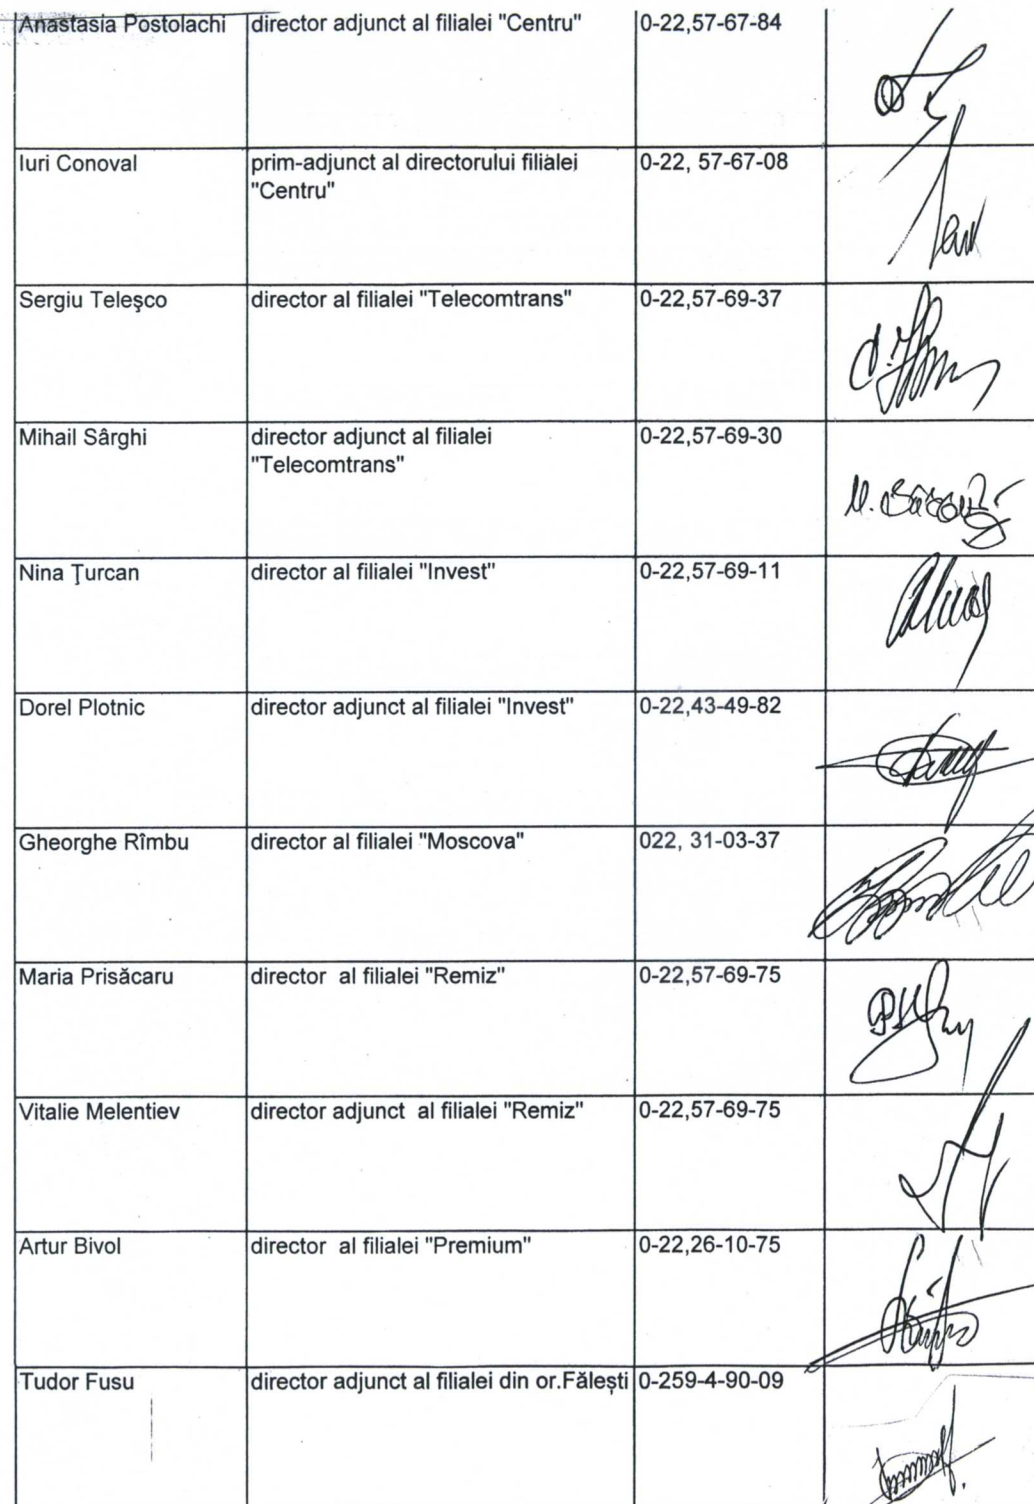 Anastasia Postolachi director adjunct al filialei "Centru" 0-22,57-67-84
Iuri Conoval prim-adjunct al directorului filialei 0-22, 57-67-08
"Centru"
Sergiu Teleşco director al filialei "Telecomtrans" 0-22,57-69-37
Mihail Sârghi director adjunct al filialei 0-22,57-69-30
"Telecomtrans"
Nina Ţurcan director al filialei "Invest" 0-22,57-69-11
Dorel Plotnic director adjunct al filialei "Invest" 0-22,43-49-82
Gheorghe Rîmbu director al filialei "Moscova" 022, 31-03-37
Maria Prisăcaru director al filialei "Remiz" 0-22,57-69-75
Vitalie Melentiev director adjunct al filialei "Remiz" 0-22,57-69-75
Artur Bivol director al filialei "Premium" 0-22,26-10-75
Tudor Fusu director adjunct al filialei din or.Fălești 0-259-4-90-09